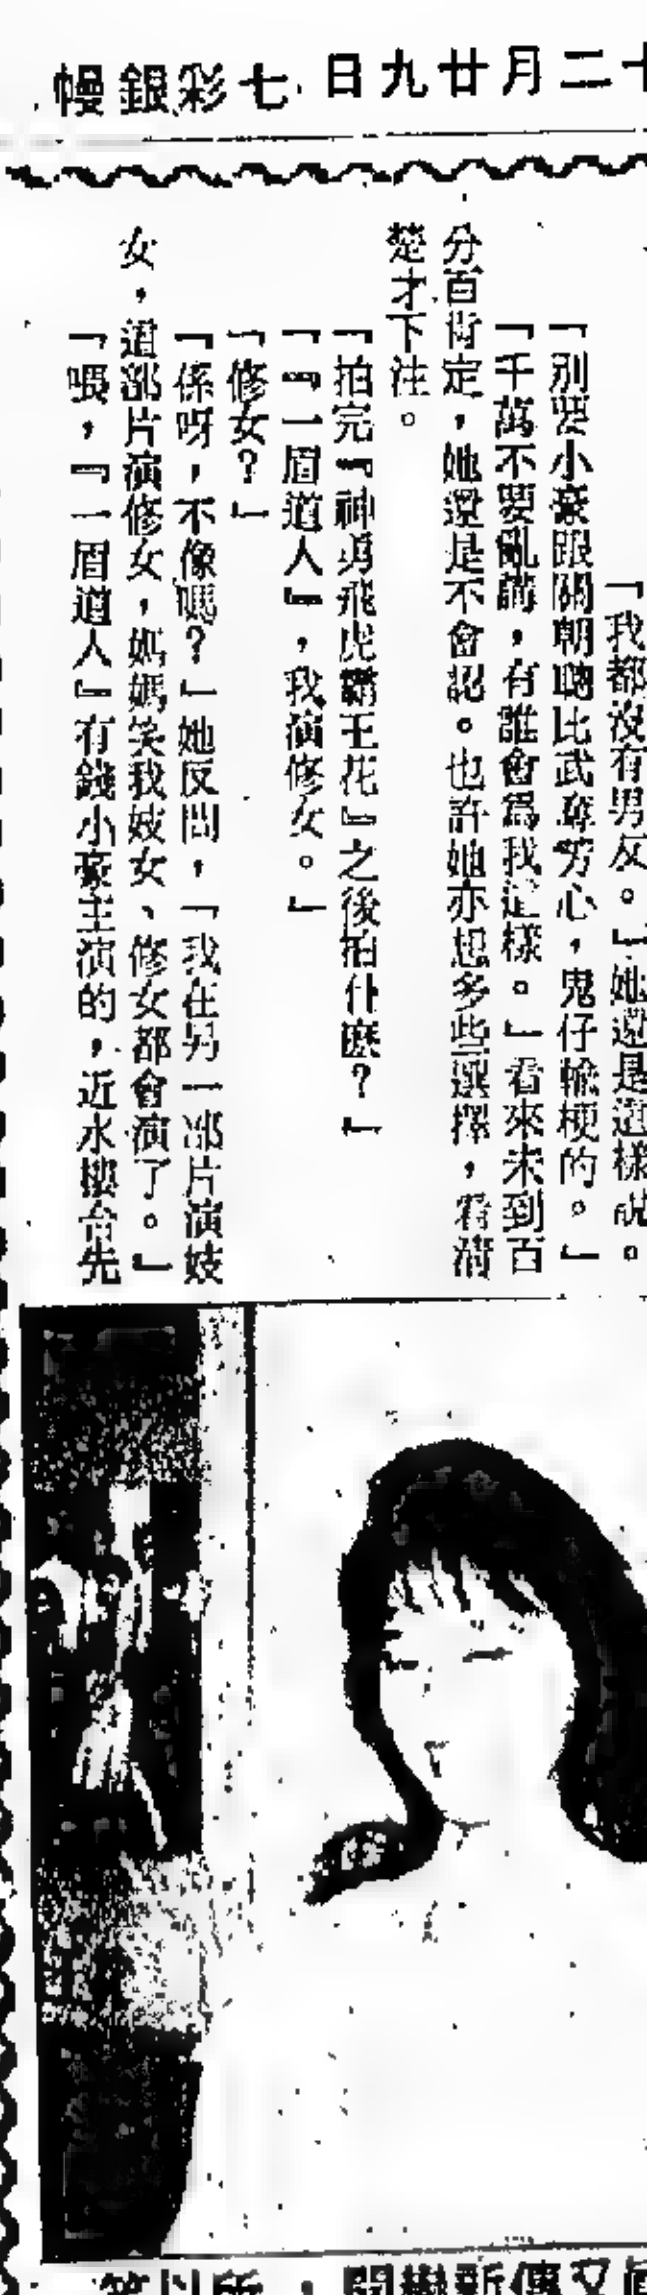 十二月廿九日 七彩銀幔
「我都沒有男友。」她還是這樣說。
「別要小豪跟關朝聰比武奪芳心,鬼仔輸梗的。」
「千萬不要亂講,有誰會為我這樣。」看來未到百
分百肯定,她還是不會認。也許她亦想多些選擇,看清
楚才下注。
「拍完『神勇飛虎霸王花』之後拍什麽?」
「『一眉道人』,我演修女。」
「修女?」
「係呀,不像嗎?」她反問,「我在另一部片演妓
女,這部片演修女,媽媽笑我妓女、修女都會演了。」
「喂,『一眉道人』有錢小豪主演的,近水樓台先